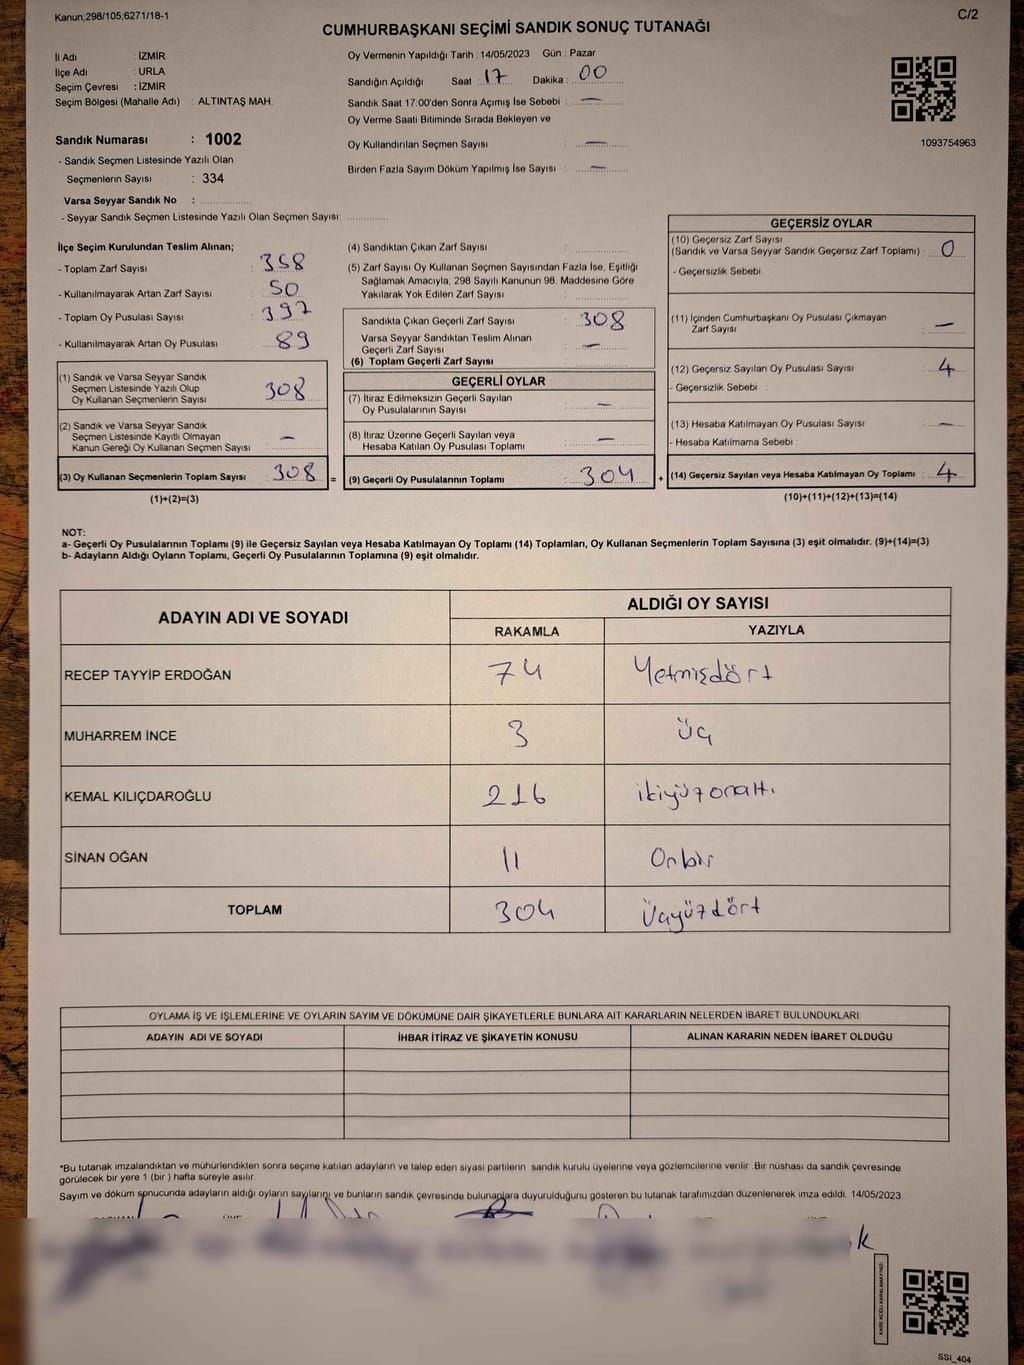 Kanun;298/105;6271/18-1
C/2
CUMHURBAŞKANI SEÇİMİ SANDIK SONUÇ TUTANAĞI
İl Adı : İZMİR
İlçe Adı : URLA
Seçim Çevresi : İZMİR
Seçim Bölgesi (Mahalle Adı) : ALTINTAŞ MAH.
Sandık Numarası : 1002
- Sandık Seçmen Listesinde Yazılı Olan
Seçmenlerin Sayısı : 334
Varsa Seyyar Sandık No :
- Seyyar Sandık Seçmen Listesinde Yazılı Olan Seçmen Sayısı:
Oy Vermenin Yapıldığı Tarih : 14/05/2023 Gün : Pazar
Sandığın Açıldığı Saat : 17 Dakika : 00
Sandık Saat 17:00'den Sonra Açımış İse Sebebi : —
Oy Verme Saati Bitiminde Sırada Bekleyen ve
Oy Kullandırılan Seçmen Sayısı : —
Birden Fazla Sayım Döküm Yapılmış İse Sayısı : —
1093754963
İlçe Seçim Kurulundan Teslim Alınan;
- Toplam Zarf Sayısı : 358
- Kullanılmayarak Artan Zarf Sayısı : 50
- Toplam Oy Pusulası Sayısı : 397
- Kullanılmayarak Artan Oy Pusulası : 89
(1) Sandık ve Varsa Seyyar Sandık
Seçmen Listesinde Yazılı Olup
Oy Kullanan Seçmenlerin Sayısı : 308
(2) Sandık ve Varsa Seyyar Sandık
Seçmen Listesinde Kayıtlı Olmayan
Kanun Gereği Oy Kullanan Seçmen Sayısı : —
(3) Oy Kullanan Seçmenlerin Toplam Sayısı : 308 =
(1)+(2)=(3)
(4) Sandıktan Çıkan Zarf Sayısı :
(5) Zarf Sayısı Oy Kullanan Seçmen Sayısından Fazla İse, Eşitliği
Sağlamak Amacıyla; 298 Sayılı Kanunun 98. Maddesine Göre
Yakılarak Yok Edilen Zarf Sayısı :
Sandıkta Çıkan Geçerli Zarf Sayısı : 308
Varsa Seyyar Sandıktan Teslim Alınan
Geçerli Zarf Sayısı : —
(6) Toplam Geçerli Zarf Sayısı
GEÇERLİ OYLAR
(7) İtiraz Edilmeksizin Geçerli Sayılan
Oy Pusulalarının Sayısı : —
(8) İtiraz Üzerine Geçerli Sayılan veya
Hesaba Katılan Oy Pusulası Toplamı : —
(9) Geçerli Oy Pusulalarının Toplamı : 304 +
GEÇERSİZ OYLAR
(10) Geçersiz Zarf Sayısı
(Sandık ve Varsa Seyyar Sandık Geçersiz Zarf Toplamı) : 0
- Geçersizlik Sebebi :
(11) İçinden Cumhurbaşkanı Oy Pusulası Çıkmayan
Zarf Sayısı : —
(12) Geçersiz Sayılan Oy Pusulası Sayısı : 4
- Geçersizlik Sebebi :
(13) Hesaba Katılmayan Oy Pusulası Sayısı : —
- Hesaba Katılmama Sebebi :
(14) Geçersiz Sayılan veya Hesaba Katılmayan Oy Toplamı : 4
(10)+(11)+(12)+(13)=(14)
NOT:
a- Geçerli Oy Pusulalarının Toplamı (9) ile Geçersiz Sayılan veya Hesaba Katılmayan Oy Toplamı (14) Toplamları, Oy Kullanan Seçmenlerin Toplam Sayısına (3) eşit olmalıdır. (9)+(14)=(3)
b- Adayların Aldığı Oyların Toplamı, Geçerli Oy Pusulalarının Toplamına (9) eşit olmalıdır.
ADAYIN ADI VE SOYADI ALDIĞI OY SAYISI
RAKAMLA YAZIYLA
RECEP TAYYİP ERDOĞAN 74 Yetmişdört
MUHARREM İNCE 3 Üç
KEMAL KILIÇDAROĞLU 216 ikiyüzonaltı
SİNAN OĞAN 11 Onbir
TOPLAM 304 Üçyüzdört
OYLAMA İŞ VE İŞLEMLERİNE VE OYLARIN SAYIM VE DÖKÜMÜNE DAİR ŞİKAYETLERLE BUNLARA AİT KARARLARIN NELERDEN İBARET BULUNDUKLARI
ADAYIN ADI VE SOYADI İHBAR İTİRAZ VE ŞİKAYETİN KONUSU ALINAN KARARIN NEDEN İBARET OLDUĞU
*Bu tutanak imzalandıktan ve mühürlendikten sonra seçime katılan adayların ve talep eden siyasi partilerin sandık kurulu üyelerine veya gözlemcilerine verilir. Bir nüshası da sandık çevresinde
görülecek bir yere 1 (bir ) hafta süreyle asılır.
Sayım ve döküm sonucunda adayların aldığı oyların sayılarını ve bunların sandık çevresinde bulunanlara duyurulduğunu gösteren bu tutanak tarafımızdan düzenlenerek imza edildi. 14/05/2023
KARE KODU KARALAMAYINIZ!
SSI_404